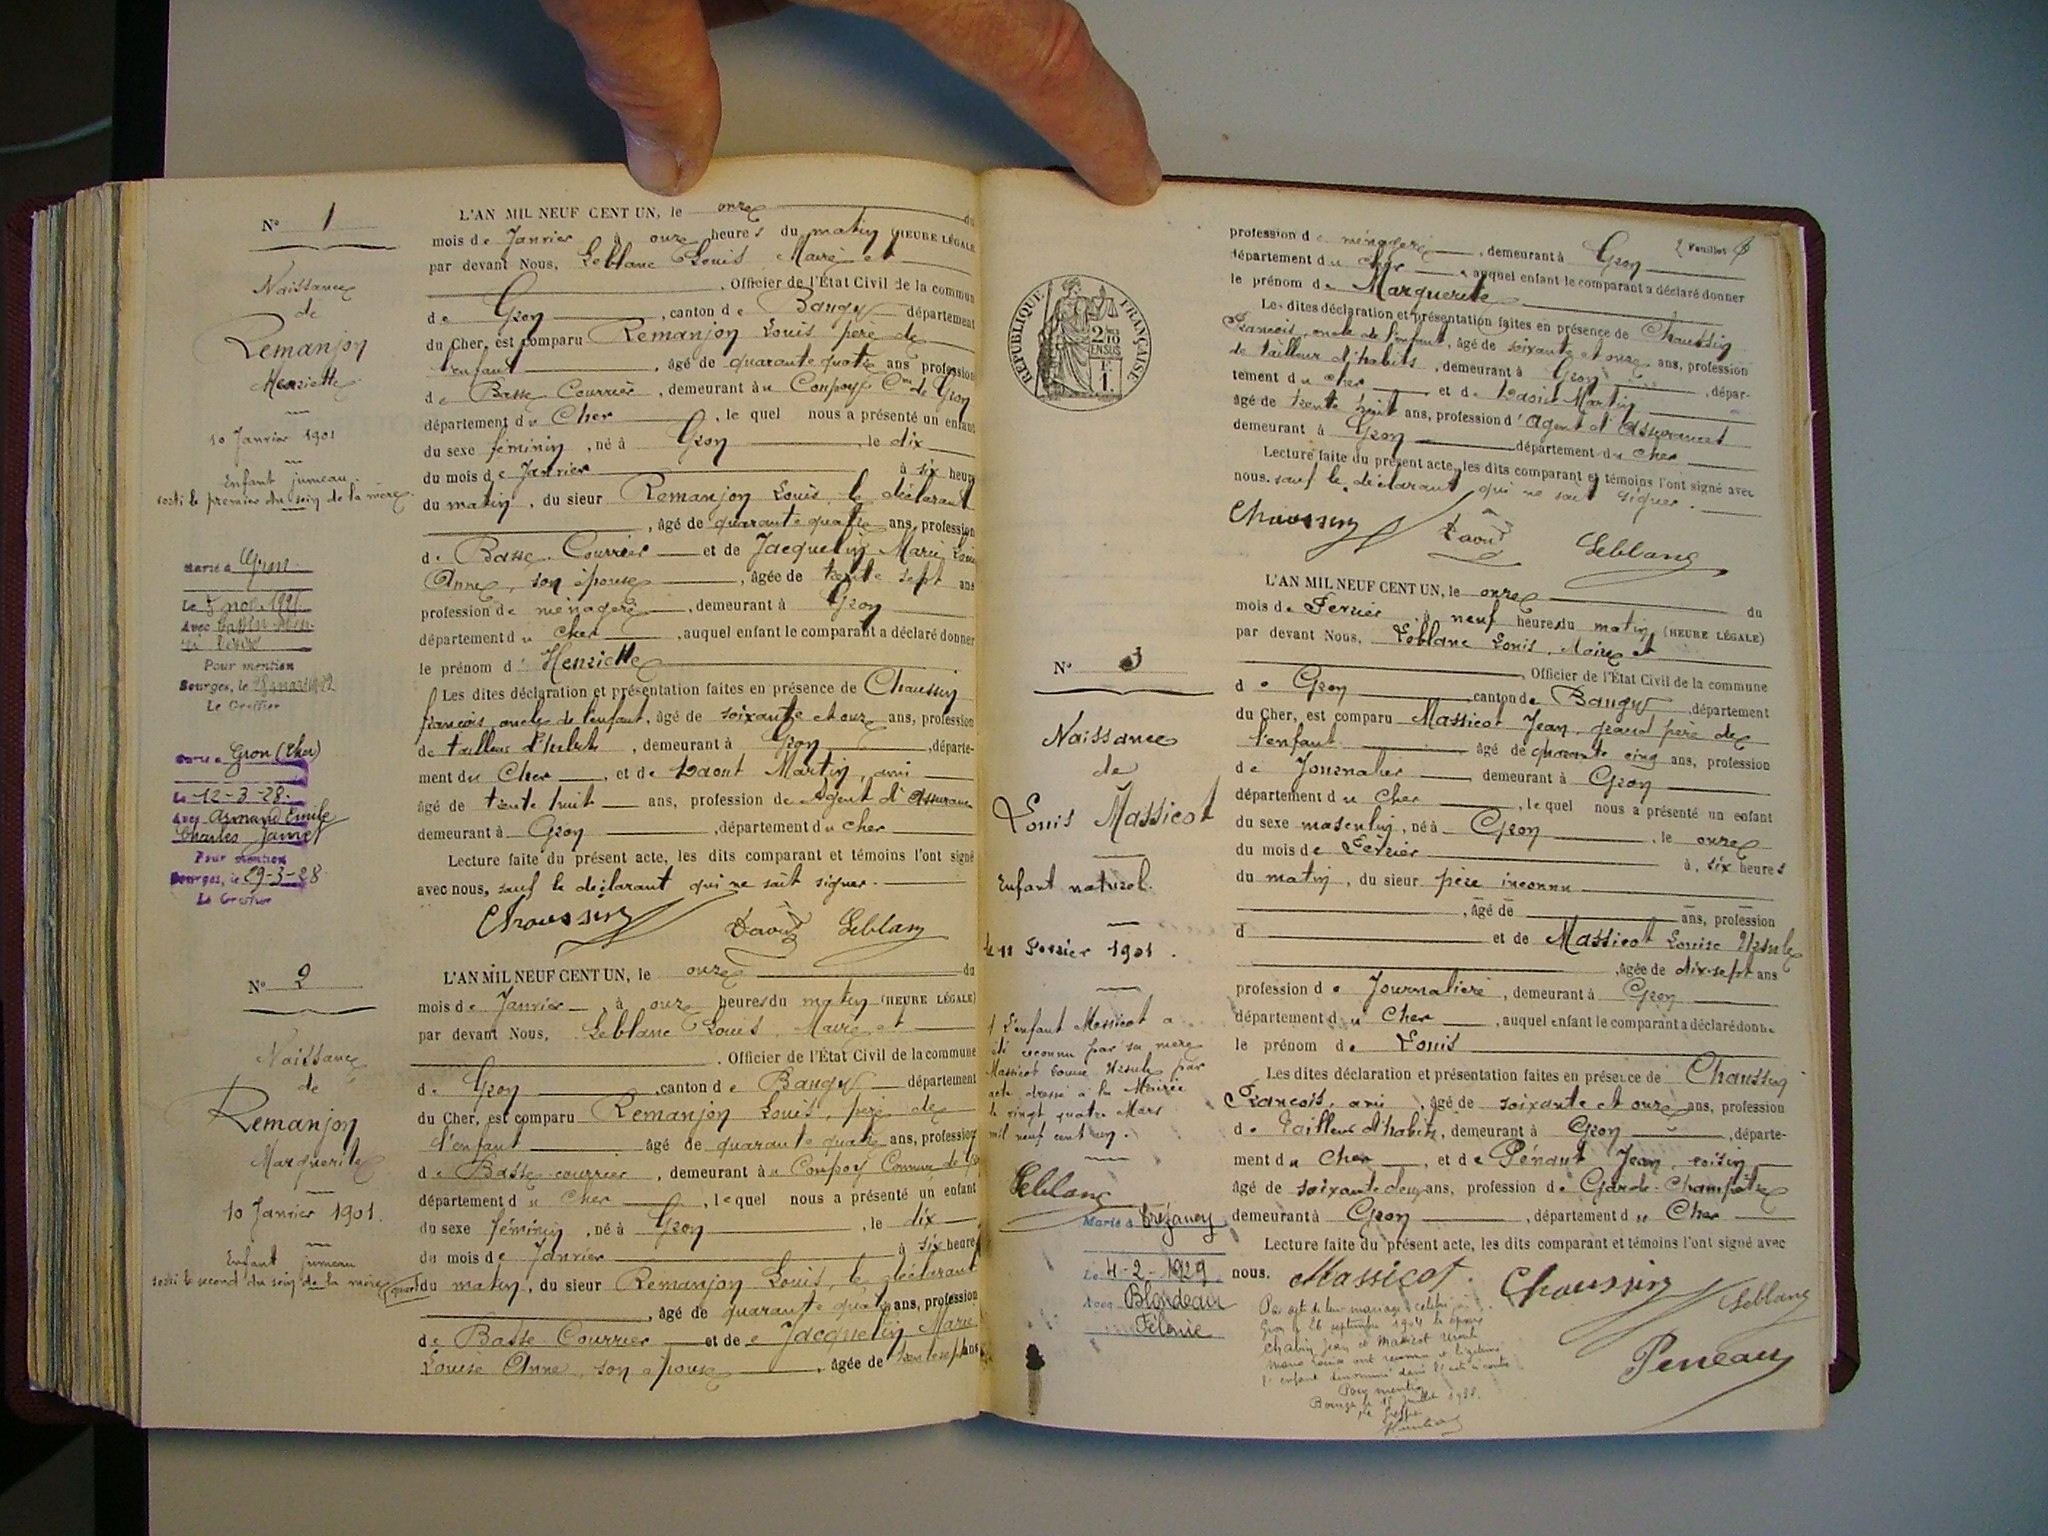 N° 1
Naissance
de
Remanjon
Henriette
10 Janvier 1901
Enfant jumeau
sorti le premier du sein de la mère
Marié à Gron
Le
Avec
Pour mention
Bourges, le
Le Greffier
Gron (Cher)
Le 12-3-28
Avec Armand Emile
Charles Jamet
Pour mention
Bourges, le 29-3-28
Le Greffier
L'AN MIL NEUF CENT UN, le onze du
mois de Janvier à onze heures du matin (HEURE LÉGALE
par devant Nous, Leblanc Louis, Maire et
, Officier de l'État Civil de la commun
de Gron, canton de Baugy département
du Cher, est comparu Remanjon Louis père de
l'enfant, âgé de quarante quatre ans profession
de Basse Courrier, demeurant à Coupoy Cne de Gron
département du Cher, le quel nous a présenté un enfant
du sexe féminin, né à Gron, le dix
du mois de Janvier à six heures
du matin, du sieur Remanjon Louis, le déclarant
, âgé de quarante quatre ans, profession
de Basse Courrier et de Jacquelin Marie Louise
Anne, son épouse, âgée de trente sept ans
profession de ménagère, demeurant à Gron
département du Cher, auquel enfant le comparant a déclaré donner
le prénom d' Henriette
Les dites déclaration et présentation faites en présence de Chaussin
françois, oncle de l'enfant, âgé de soixante et onze ans, profession
de tailleur d'habits, demeurant à Gron, départe-
ment du Cher, et de Daout Martin, ami
âgé de trente huit ans, profession de Agent d'Assurance
demeurant à Gron, département du cher
Lecture faite du présent acte, les dits comparant et témoins l'ont signé
avec nous, sauf le déclarant qui ne sait signer.
Chaussin Daout Leblanc
N° 2
Naissance
de
Remanjon
Marguerite
10 Janvier 1901.
Enfant jumeau
sorti le second du sein de la mère
L'AN MIL NEUF CENT UN, le onze du
mois de Janvier, à onze heures du matin (HEURE LÉGALE)
par devant Nous, Leblanc Louis, Maire, et
, Officier de l'État Civil de la commune
de Gron, canton de Baugy département
du Cher, est comparu Remanjon Louis, père de
l'enfant âgé de quarante quatre ans, profession
de Basse-courrier, demeurant à Coupoy Commune de
département du Cher, lequel nous a présenté un enfant
du sexe féminin, né à Gron, le dix
du mois de Janvier à six heures
du matin, du sieur Remanjon Louis, le déclarant
, âgé de quarante quatre ans, profession
de Basse Courrier et de Jacquelin Marie
Louise Anne, son épouse, âgée de trente sept ans
2 Feuillet
profession de ménagère, demeurant à Gron
département du cher, auquel enfant le comparant a déclaré donner
le prénom de Marguerite
Les dites déclaration et présentation faites en présence de Chaussin
François, oncle de l'enfant, âgé de soixante et onze ans, profession
de tailleur d'habits, demeurant à Gron, dépar-
tement du cher et de Daout Martin
âgé de trente huit ans, profession d'Agent d'Assurances
demeurant à Gron département du cher
Lecture faite du présent acte, les dits comparant et témoins l'ont signé avec
nous, sauf le déclarant qui ne sait signer.
Chaussin Daout Leblanc
RÉPUBLIQUE FRANÇAISE
2/10
EN SUS
1F.
N° 3
Naissance
de
Louis Massicot
Enfant naturel.
le 11 Février 1901.
L'enfant Massicot a
été reconnu par sa mère
Massicot Louise Ursule par
acte dressé à la Mairie
le vingt quatre Mars
mil neuf cent un.
Leblanc
Marié à
Le 4-2-1929
Avec Blondeau
L'AN MIL NEUF CENT UN, le onze du
mois de Février, à neuf heures du matin (HEURE LÉGALE)
par devant Nous, Leblanc Louis, Maire et
, Officier de l'État Civil de la commune
de Gron canton de Baugy, département
du Cher, est comparu Massicot Jean, grand père de
l'enfant âgé de quarante cinq ans, profession
de Journalier demeurant à Gron
département du Cher, le quel nous a présenté un enfant
du sexe masculin, né à Gron, le onze
du mois de Février à, six heures
du matin, du sieur père inconnu
, âgé de ans, profession
d et de Massicot Louise Ursule
, âgée de dix-sept ans
profession de Journalière, demeurant à Gron
département du Cher, auquel enfant le comparant a déclaré donne
le prénom de Louis
Les dites déclaration et présentation faites en présence de Chaussin
François, ami, âgé de soixante et onze ans, profession
de Tailleur d'habits, demeurant à Gron, départe-
ment du Cher, et de Pénaut Jean, voisin
âgé de soixante deux ans, profession de Garde-Champêtre
demeurant à Gron, département du Cher
Lecture faite du présent acte, les dits comparant et témoins l'ont signé avec
nous. Massicot. Chaussin Leblanc
Peneau
Par acte de leur mariage célébré
Gron le 26 septembre 1904 les époux
Chabin Jean et Massicot
ont reconnu et légitimé
l'enfant dénommé dans l'acte ci contre
Pour mention